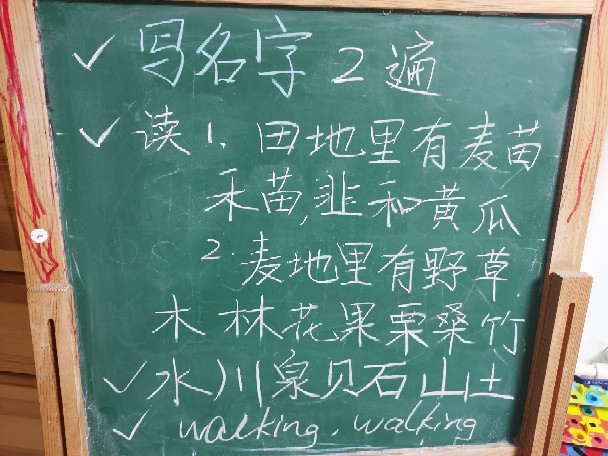 ✓ 写名字2遍
✓ 读1.田地里有麦苗
禾苗,韭和黄瓜
2.麦地里有野草
木林花果栗桑竹
✓ 水川泉贝石山土
✓ walking, walking